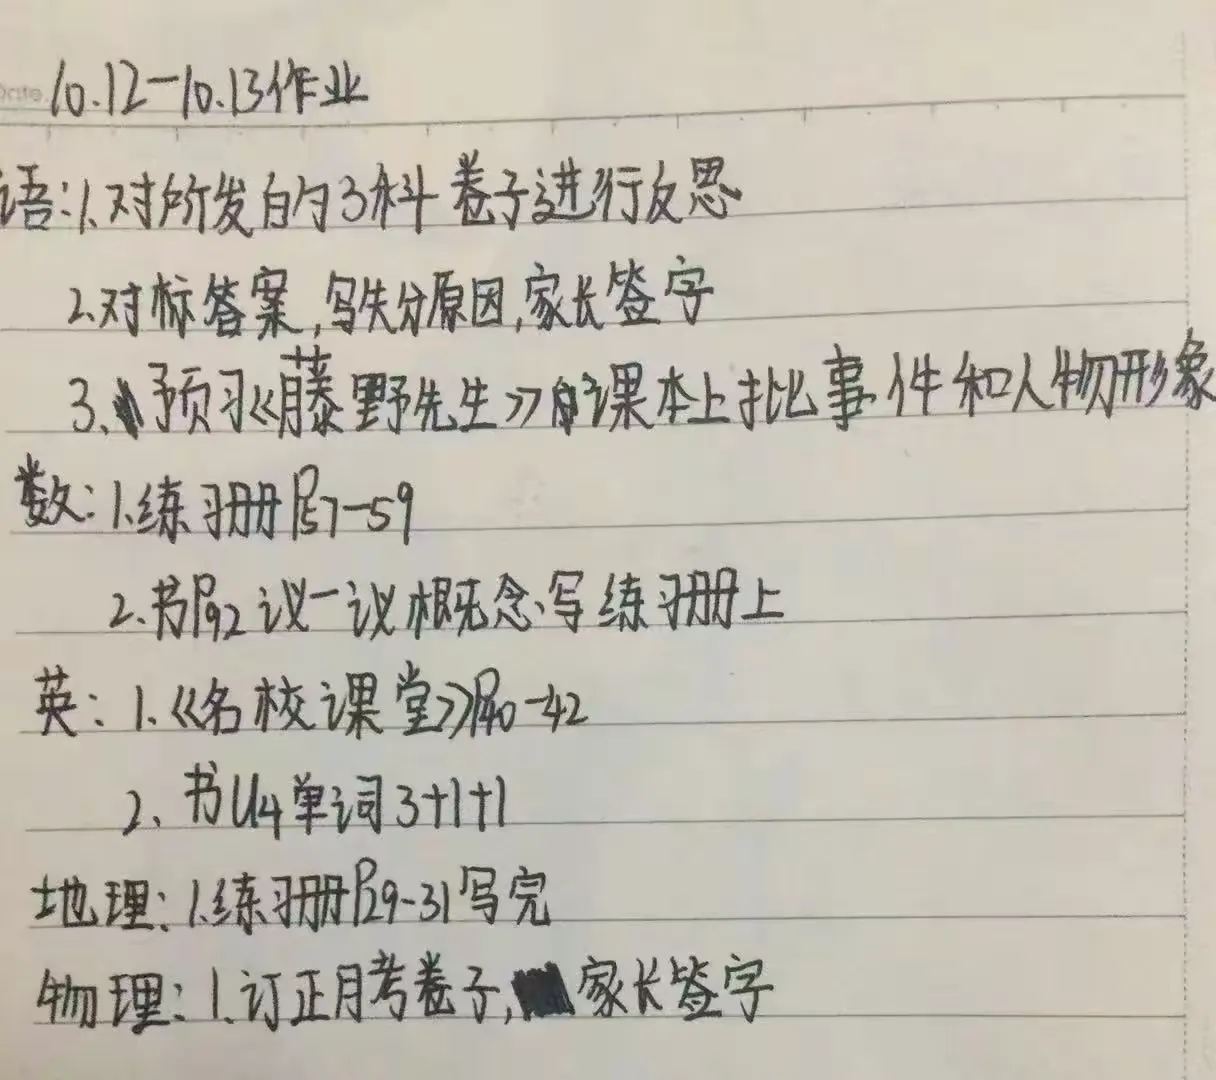 Date.
10.12-10.13作业
语:1.对所发的3科卷子进行反思
2.对标答案,写失分原因,家长签字
3.预习《藤野先生》课本上批事件和人物形象
数:1.练习册P57-59
2.书P92议一议概念、写练习册上
英:1.《名校课堂》P40-42
2、书U4单词3+1+1
地理:1.练习册P29-31写完
物理:1.订正月考卷子,家长签字